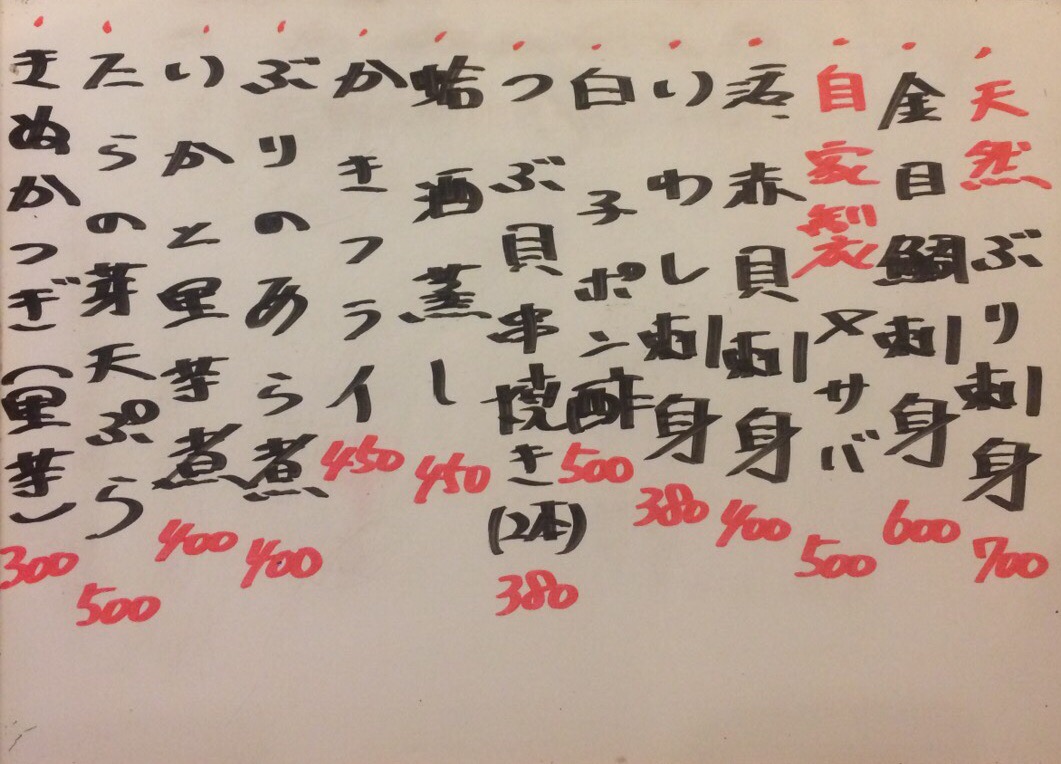 天然ぶり刺身 700
金目鯛刺身 600
自家製〆サバ 500
活赤貝刺身 400
いわし刺身 380
白子ポン酢 500
つぶ貝串焼き(2本) 380
蛤酒蒸し 450
かきフライ 450
ぶりのあら煮 400
いかと里芋煮 400
たらの芽天ぷら 500
きぬかつぎ(里芋) 300